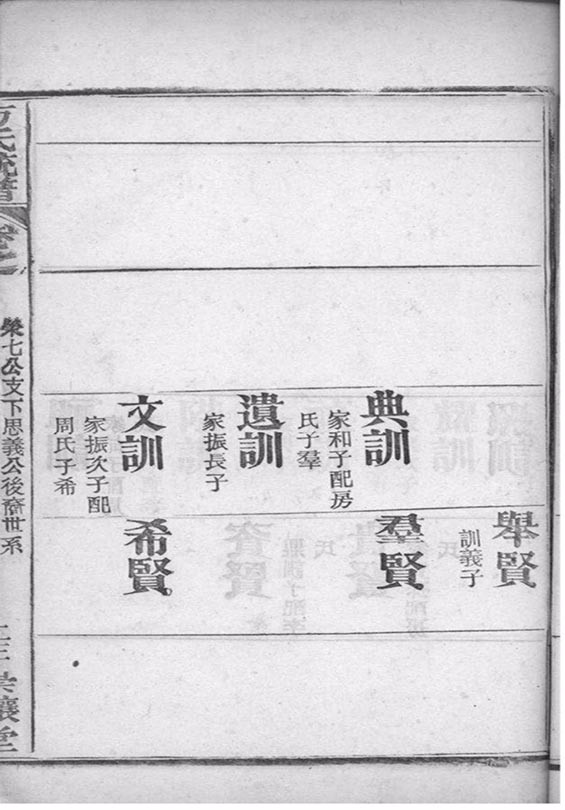 典訓
家和子配房
氏子羣
遺訓
家振長子
文訓
家振次子配
周氏子希
舉賢
訓義子
羣賢
希賢
氏統譜
榮七公支下思義公後裔世系